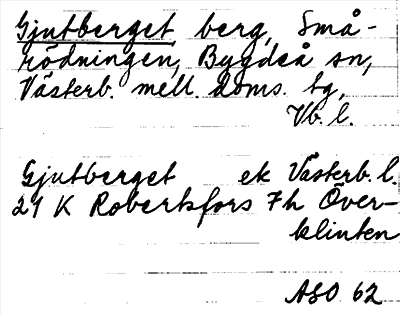 Gjutberget, berg, Små-
rödningen, Bygdeå sn,
Västerb. mell. doms. tg,
Vb. l.
Gjutberget ek Västerb. l.
21 K Robertsfors 7h Över-
klinten
ASO 62